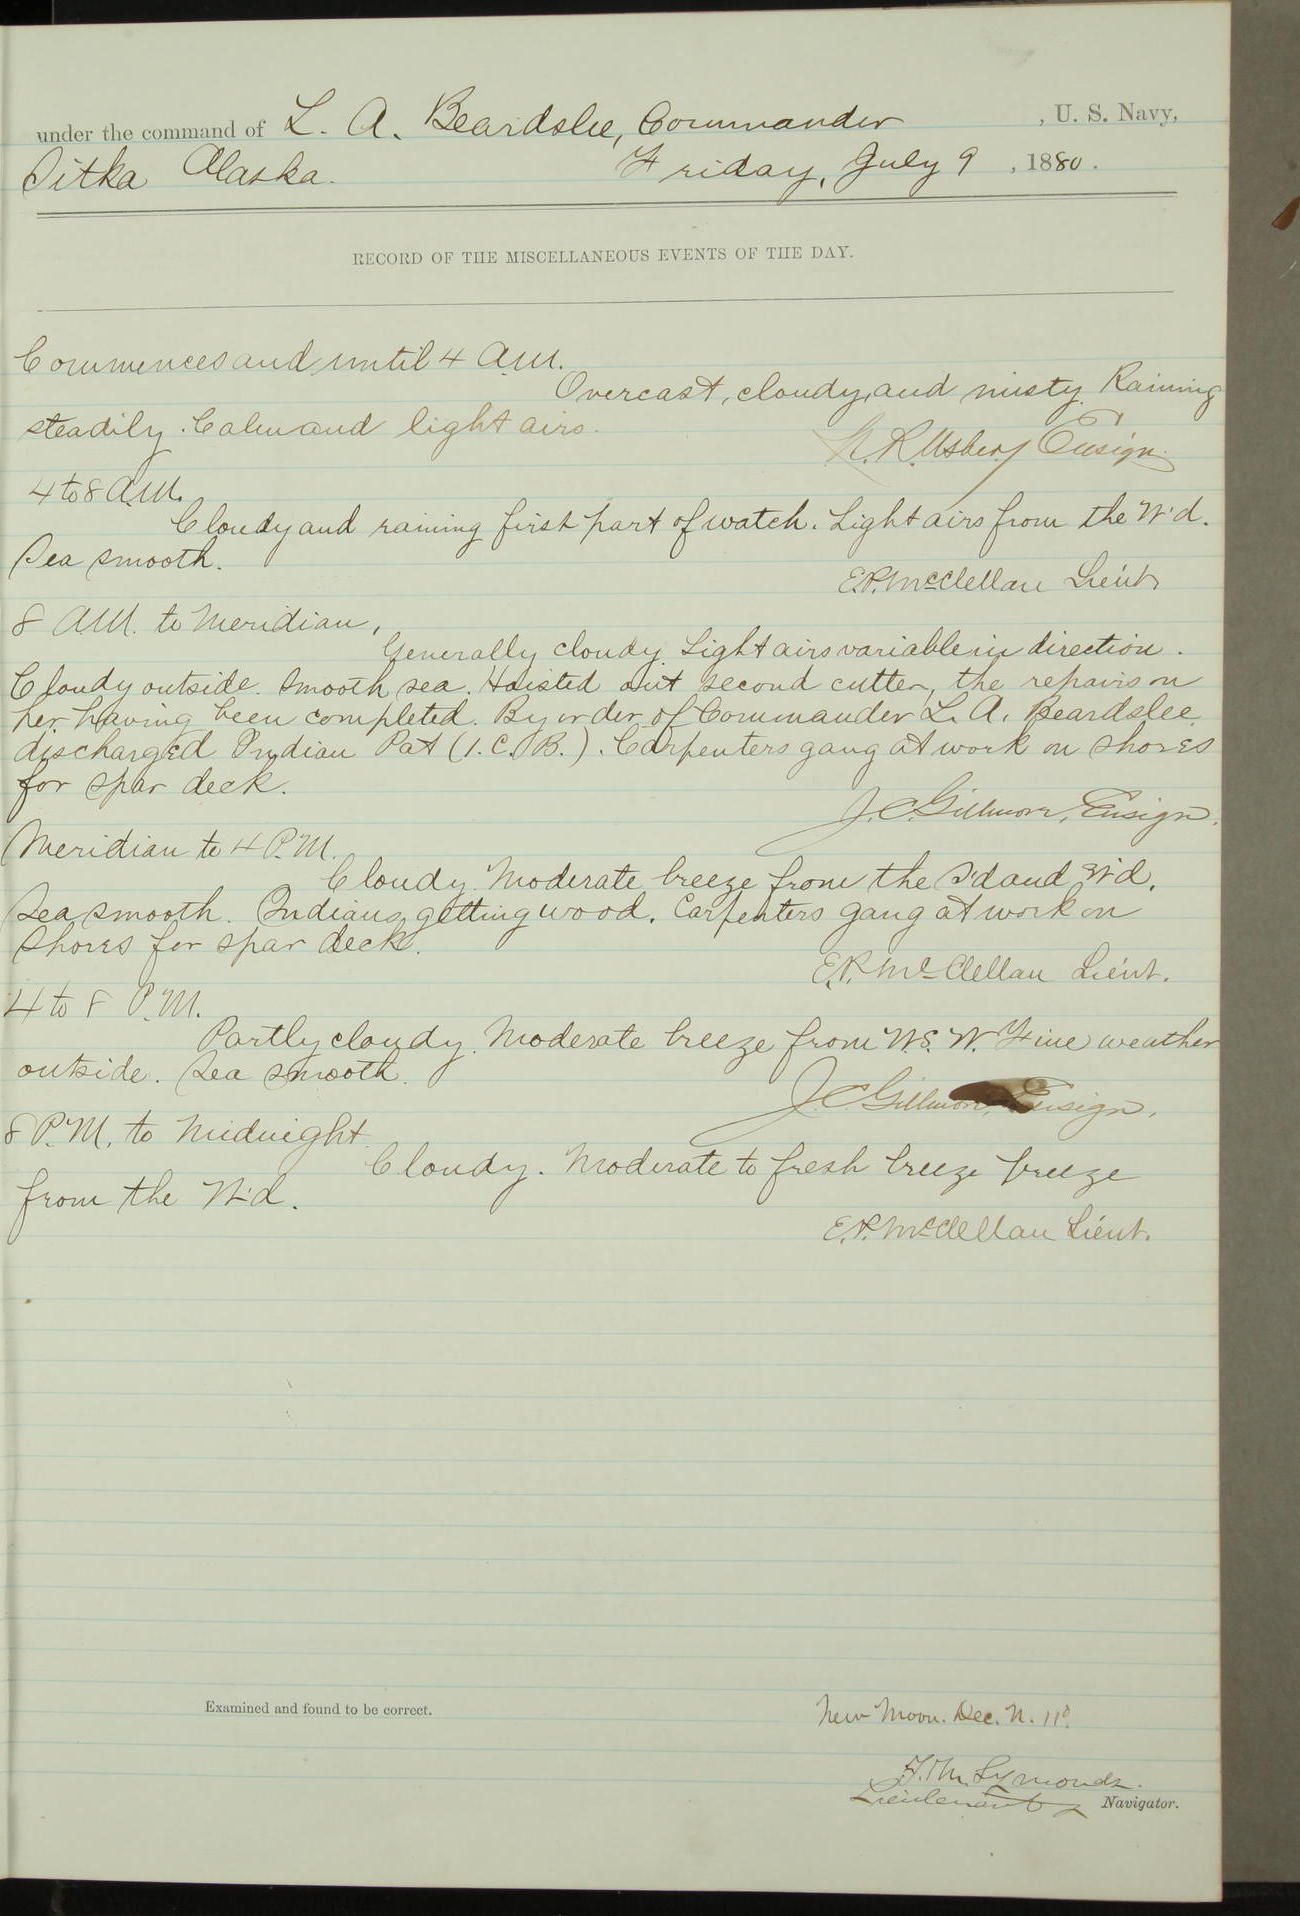 under the command of L. A. Beardslee, Commander , U. S. Navy,
Sitka Alaska. Friday, July 9 , 1880.
RECORD OF THE MISCELLANEOUS EVENTS OF THE DAY.
Commences and until 4 A.M.
Overcast, cloudy, and misty. Raining
steadily. Calm and light airs.
N. R. Usher, Ensign.
4 to 8 A.M.
Cloudy and raining first part of watch. Light airs from the W'd.
Sea smooth.
E.P. McClellan Lieut.
8 A.M. to Meridian,
Generally cloudy. Light airs variable in direction.
Cloudy outside. Smooth sea. Hoisted out second cutter, the repairs on
her having been completed. By order of Commander L. A. Beardslee,
discharged Indian Pat (1. C. B.). Carpenters gang at work on shores
for spar deck.
J. C. Gillmore, Ensign.
Meridian to 4 P.M.
Cloudy. Moderate breeze from the S'd and W'd.
Sea smooth. Indians getting wood. Carpenters gang at work on
shores for spar deck.
E.P. McClellan Lieut.
4 to 8 P.M.
Partly cloudy. Moderate breeze from W.S.W. Fine weather
outside. Sea smooth.
J. C. Gillmore, Ensign.
8 P.M. to Midnight.
Cloudy. Moderate to fresh breeze breeze
from the W'd.
E.P. McClellan Lieut.
Examined and found to be correct.
New Moon. Dec. N. 11°.
F. M. Symonds.
Lieutenant Navigator.